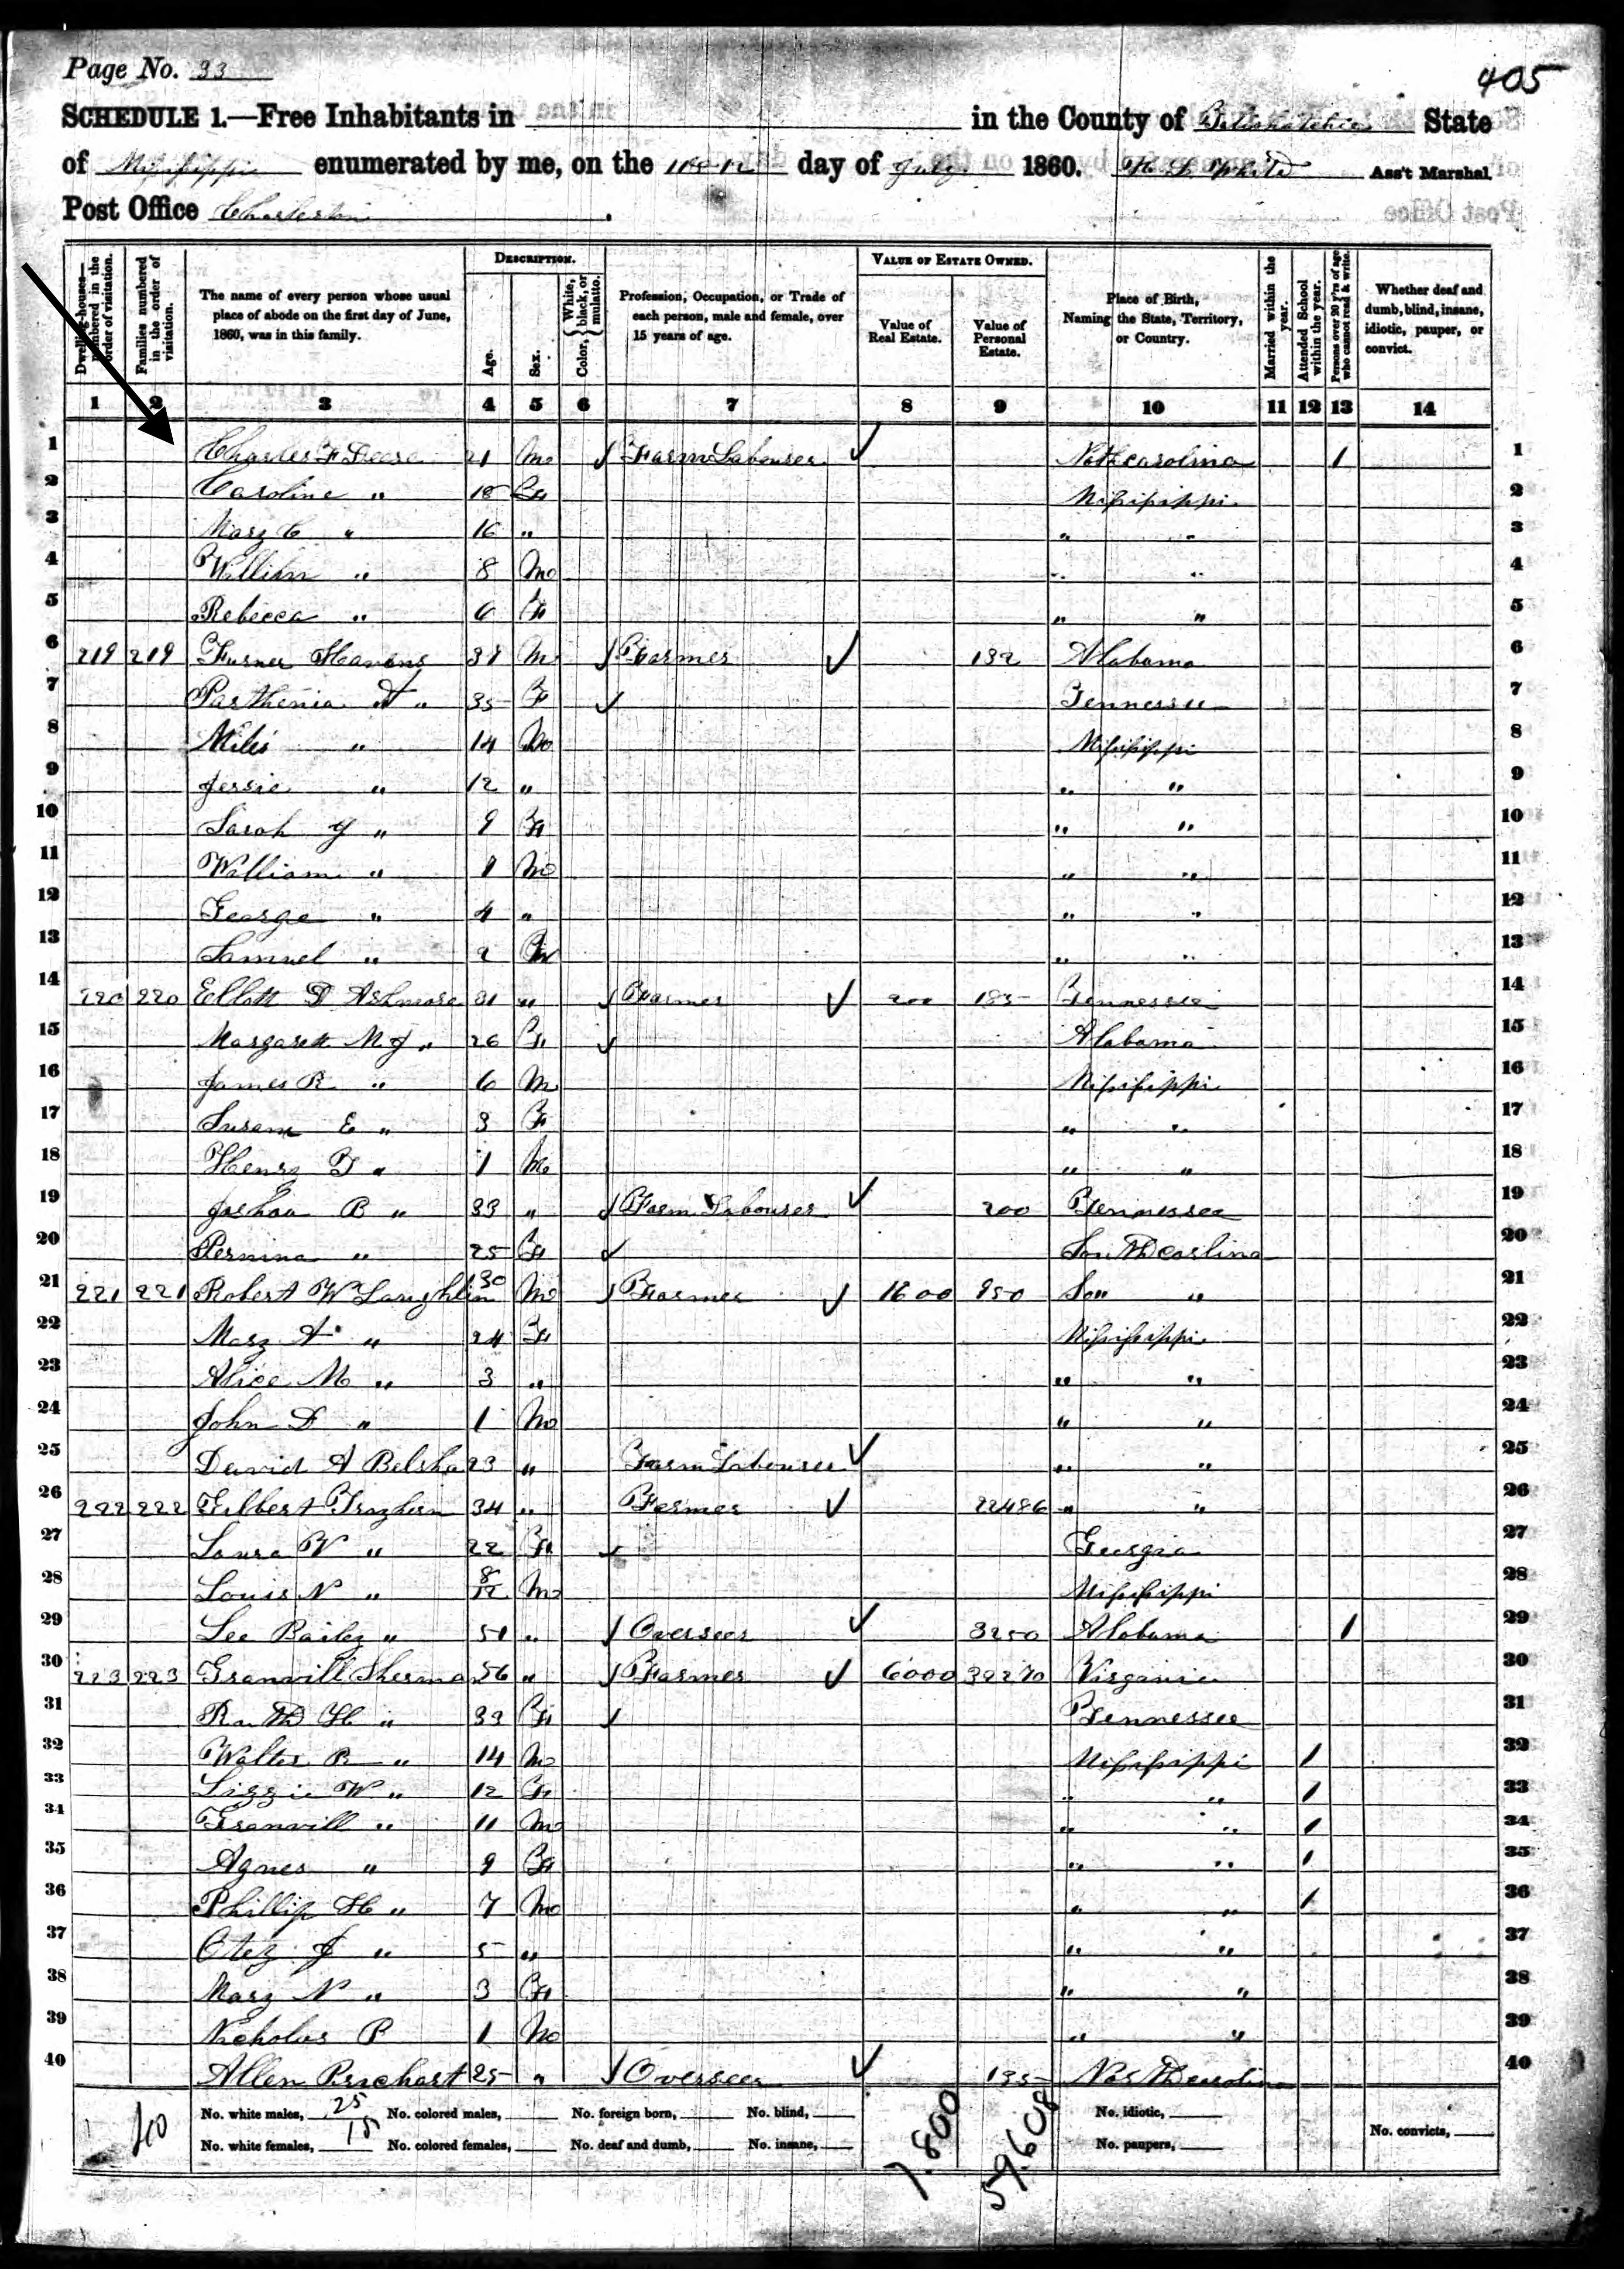 Page No. 33
405
SCHEDULE 1.—Free Inhabitants in in the County of State
of Mississippi enumerated by me, on the 11 & 12 day of July 1860. White Ass't Marshal.
Post Office Charleston
Dwelling-houses—numbered in the order of visitation.
Families numbered in the order of visitation.
The name of every person whose usual place of abode on the first day of June, 1860, was in this family.
DESCRIPTION.
Age.
Sex.
Color, { White, black, or mulatto.
Profession, Occupation, or Trade of each person, male and female, over 15 years of age.
VALUE OF ESTATE OWNED.
Value of Real Estate.
Value of Personal Estate.
Place of Birth, Naming the State, Territory, or Country.
Married within the year.
Attended School within the year.
Persons over 20 y'rs of age who cannot read & write.
Whether deaf and dumb, blind, insane, idiotic, pauper, or convict.
1 2 3 4 5 6 7 8 9 10 11 12 13 14
1 Charles F Deese 21 M Farm Labourer Northcarolina 1 1
2 Caroline " 18 F Mississippi 2
3 Mary C " 16 " " " 3
4 William " 8 M " " 4
5 Rebecca " 6 F " " 5
6 219 219 Turner Havens M Farmer 132 Alabama 6
7 Parthenia " 35 F Tennessee 7
8 Miles " 14 M Mississippi 8
9 Jessie " 12 " " " 9
10 Sarah J " 9 F " " 10
11 William " M " " 11
12 George " 4 " " " 12
13 Samuel " 2 M " " 13
14 220 220 Ellott D Ashmore 31 " Farmer 200 185 Tennessee 14
15 Margarett M J " 26 F Alabama 15
16 James R " 6 M Mississippi 16
17 Susan E " 3 F " " 17
18 Henry T " 1 M " " 18
19 Joshua B " 33 " Farm Labourer 200 Tennessee 19
20 Pernina " 25 F Southcarlina 20
21 221 221 Robert W Laughlin 30 M Farmer 1600 950 Sou " 21
22 Mary A " 24 F Mississippi 22
23 Alice M " 3 " " " 23
24 John D " 1 M " " 24
25 David A Belsha 23 " Farm Labourer " " 25
26 222 222 Gilbert 34 " Farmer 22486 " " 26
27 Laura W " 22 F Georgia 27
28 Louis N " 8/12 M Mississippi 28
29 Lee Bailey " 51 " Overseer 3250 Alabama 1 29
30 223 223 Granvill Sherman 56 " Farmer 6000 32270 Virginia 30
31 Ruth H " 33 F Tennessee 31
32 Walter R " 14 M Mississippi 1 32
33 Lizzie W " 12 F " " 1 33
34 Granvill " 11 M " " 1 34
35 Agnes " 9 F " " 1 35
36 Phillip H " 7 M " " 1 36
37 Otey J " 5 " " " 37
38 Mary N " 3 F " " 38
39 Nicholas P 1 M " " 39
40 Allen 25 " Overseer 135 Northcarolina 40
40
No. white males, 25 No. colored males, No. foreign born, No. blind, 7.800 59.608 No. idiotic,
No. white females, 15 No. colored females, No. deaf and dumb, No. insane, No. paupers, No. convicts,